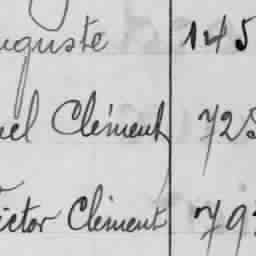 uguste 145
uel Clément 725
ictor Clément 793